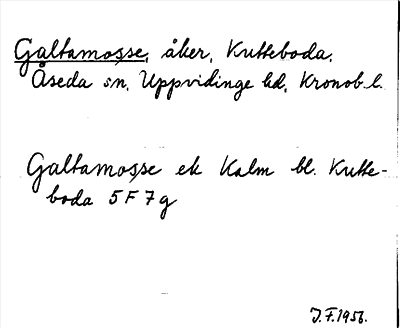 Galtamosse, åker, Kutteboda,
Åseda sn, Uppvidinge hd, Kronob. l.
Galtamosse ek Kalm bl. Kutte-
boda 5 F 7 g
J.F. 1956.